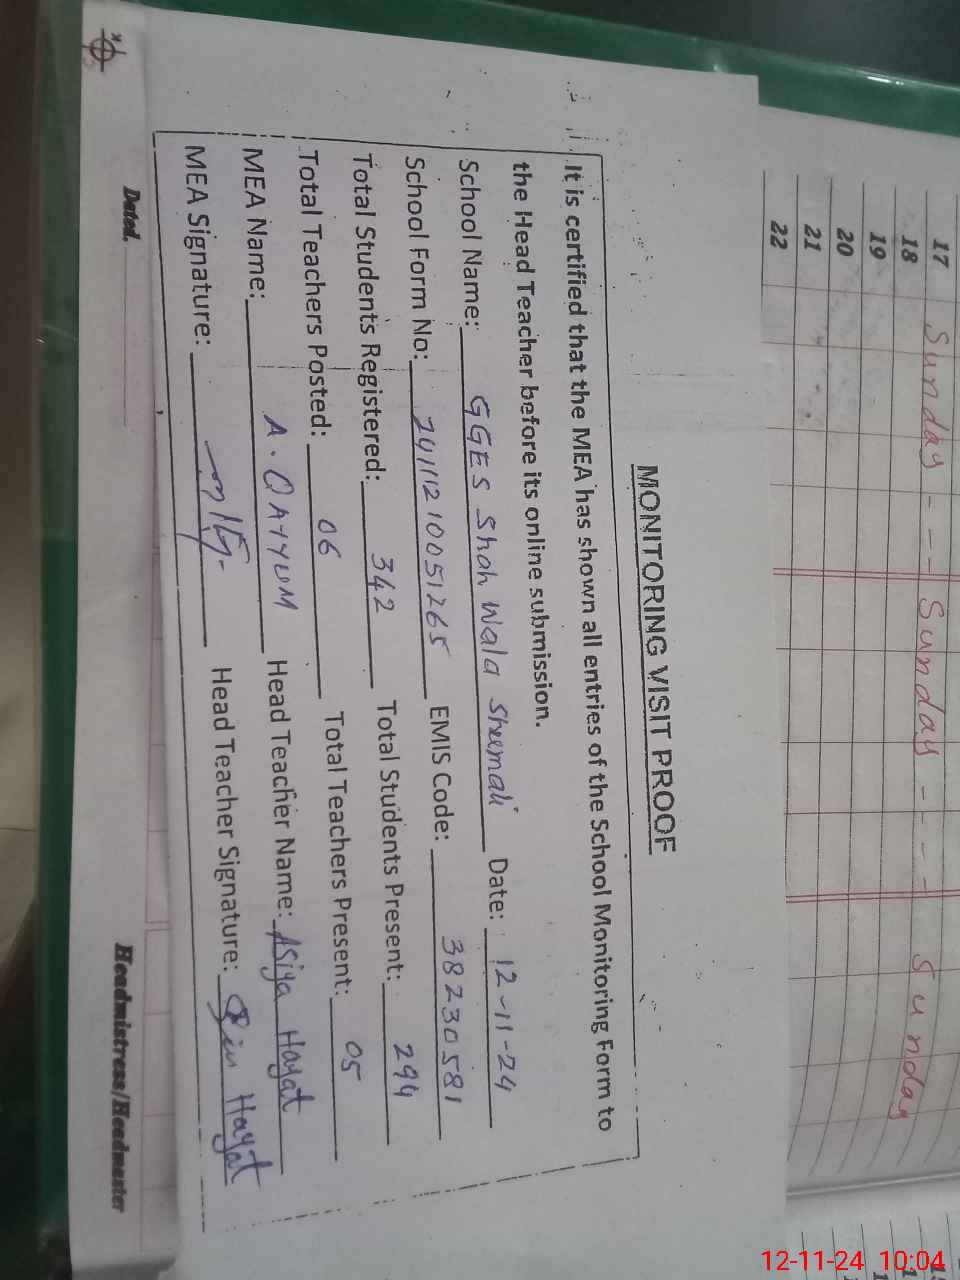 17 Sunday - - - Sunday - - - - Sunday
18
19
20
21
22
MONITORING VISIT PROOF
It is certified that the MEA has shown all entries of the School Monitoring Form to
the Head Teacher before its online submission.
School Name: GGES Shah Wala Sheemali Date: 12-11-24
School Form No: 2411121005126 5 EMIS Code: 38230581
Total Students Registered: 342 Total Students Present: 294
Total Teachers Posted: 06 Total Teachers Present: 05
MEA Name: A. QAYYUM Head Teacher Name: Asiya Hayat
MEA Signature: Head Teacher Signature: Hayat
Dated. Headmistress/Headmaster
12-11-24 10:04